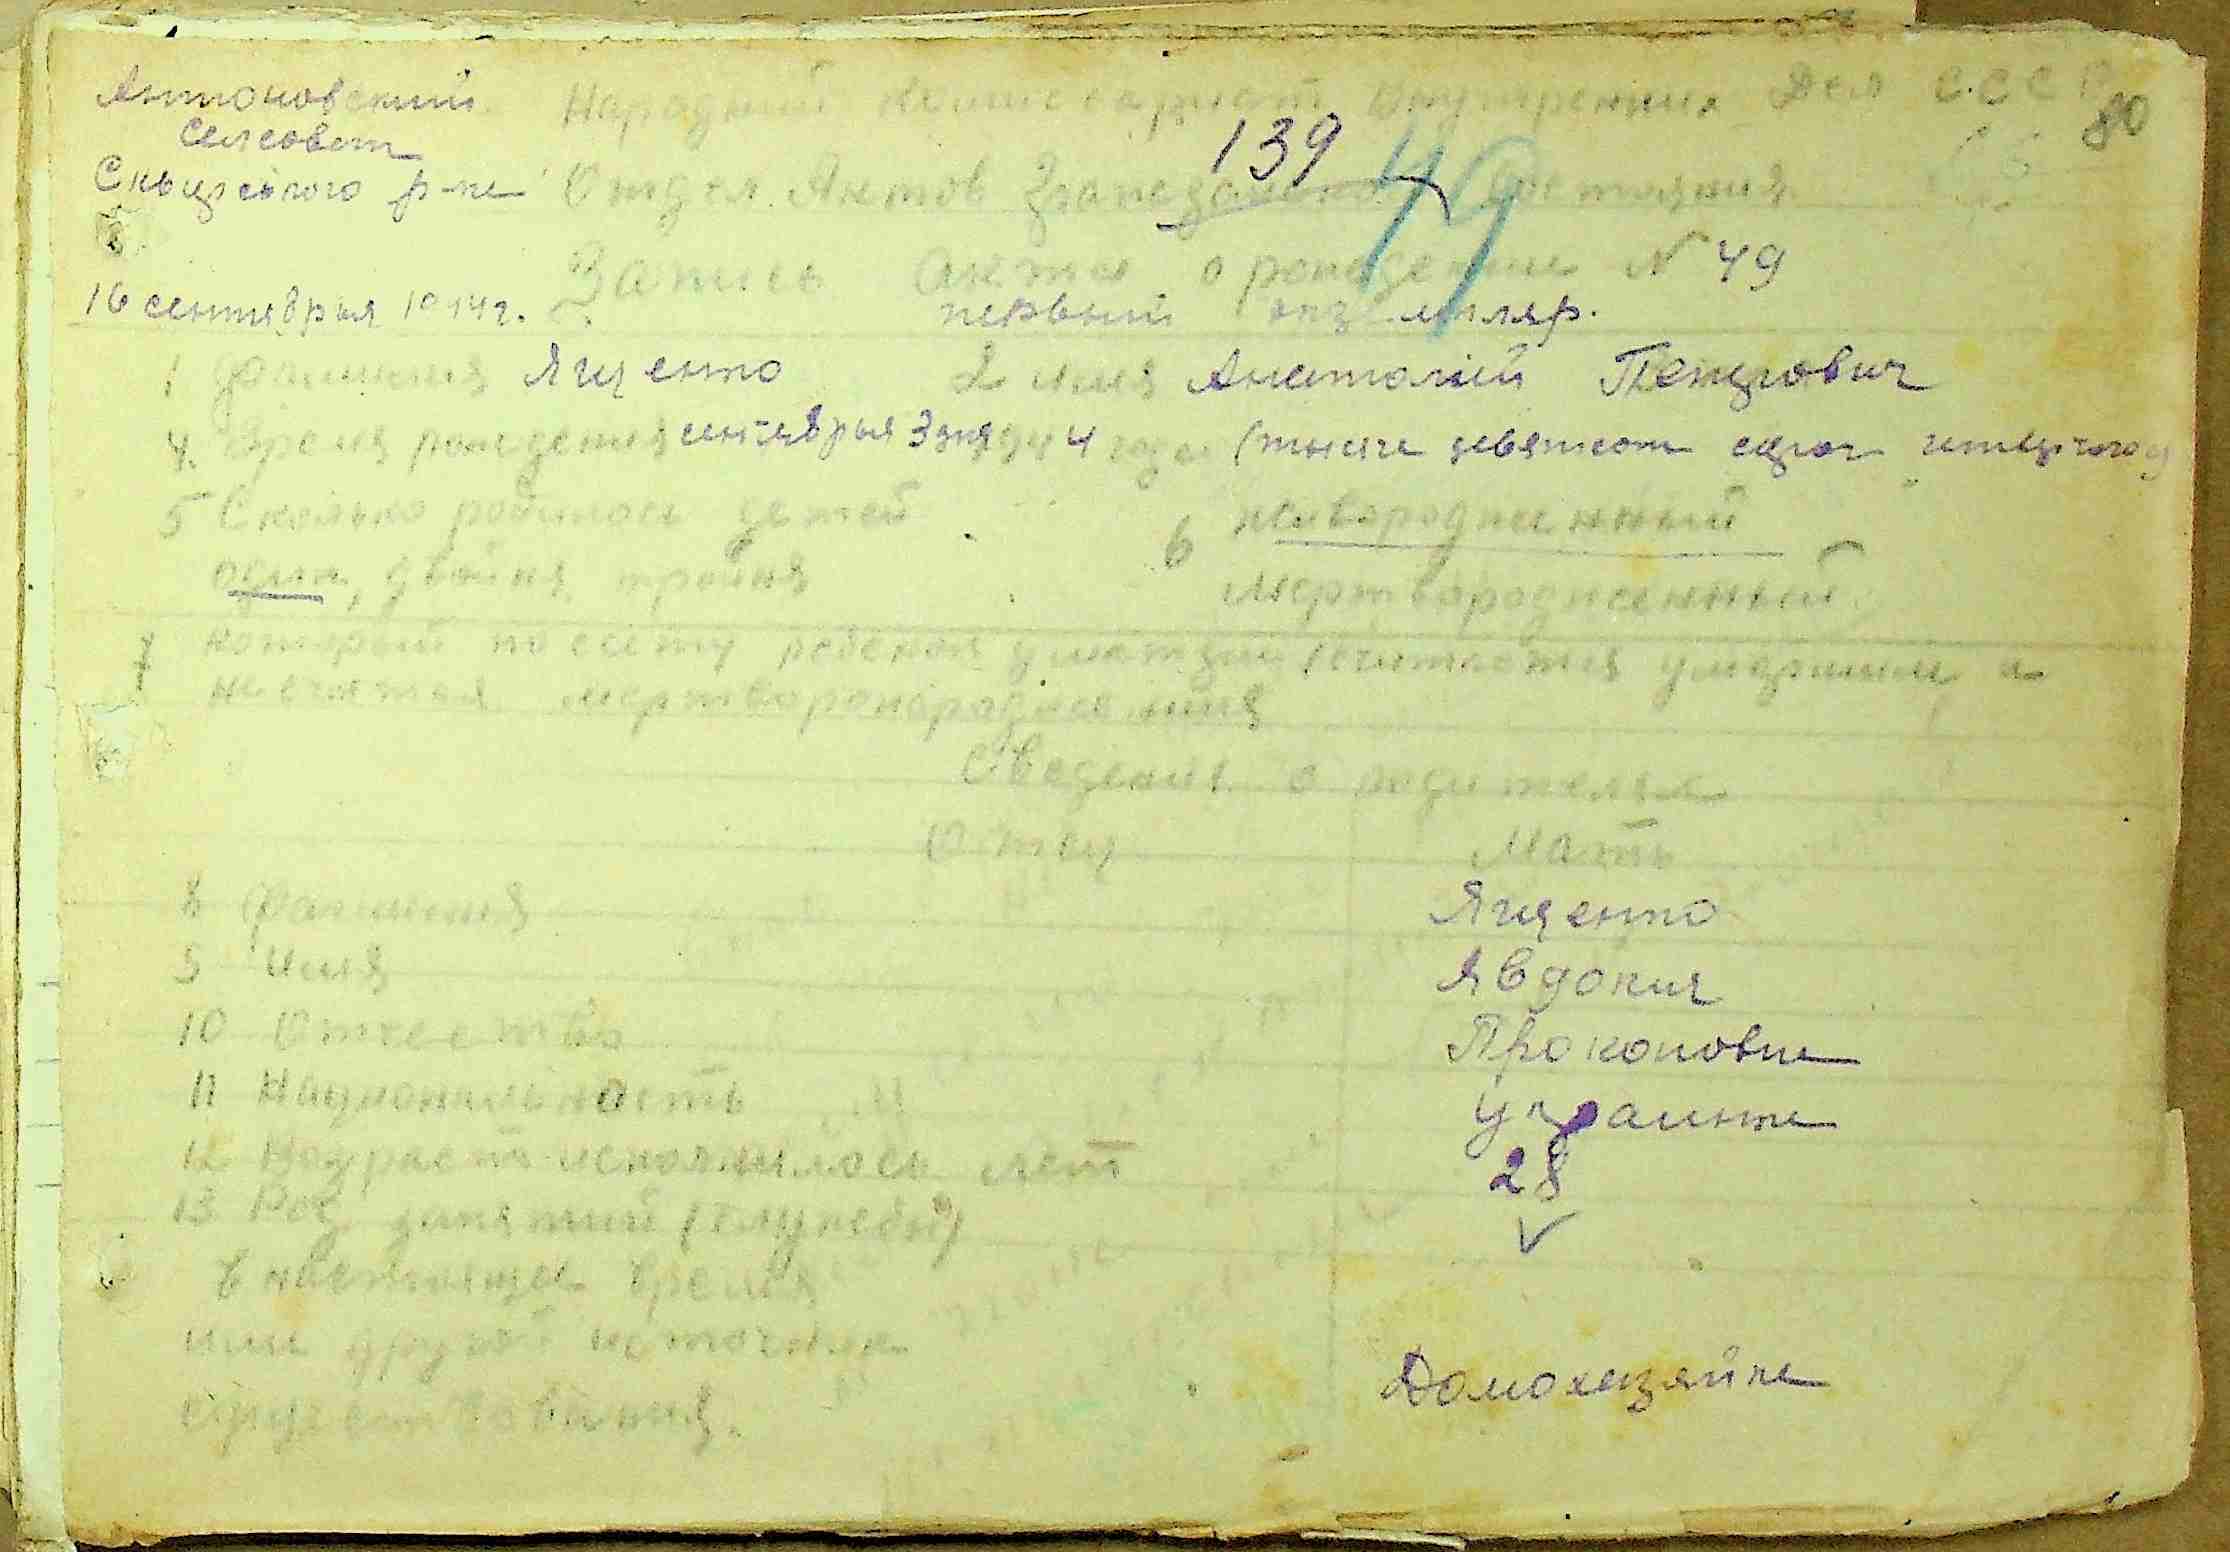 Антоновский Народный Комиссариат Внутренних Дел С.С.С.Р. 80
Сельсовет
139
Сквирского р-на Отдел Актов Гражданского Состояния
49
Запись акта о рождении N 49
16 сентября 1944г. первый экземпляр.
1 Фамилия Ященко 2 Имя Анатолий Петрович
4. Время рождения сентября 3 дня 1944 года (тысяча девятсот сорок четвертого
5 Сколько родилось детей 6 живорожденный
один, двойня, тройня мертворожденный
7 который по счету ребенок у матери (считая и умершим и
не считая мертворожденных
Сведения о родителях
Отец Мать
8 Фамилия Ященко
9 Имя Явдокия
10 Отчество Прокоповна
11 Национальность украинка
12 Возраст исполнилось лет 28
13 Род занятий (службы)
в настоящее время
или другой источник
существования. Домохазяйка